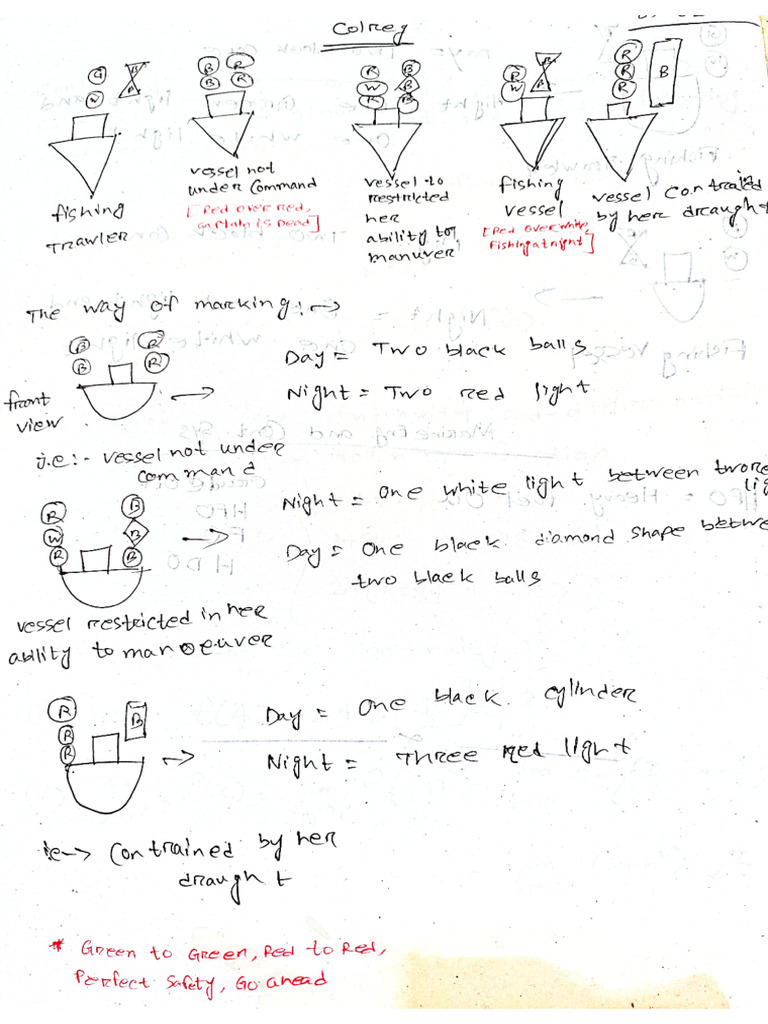 Colreg
G
W
B
B
B
B
R
R
R
W
R
B
B
B
R
W
B
B
R
R
R
B
fishing
TRawLER
vessel not
under command
[Red over red,
captain is Dead]
vessel to
restricted
her
ability to
manuver
fishing
vessel
[Red over white,
fishing at night]
vessel contrained
by her draught
The way of marking:→
B
B
R
R
front
view
Day = Two black balls
Night = Two red light
i.e:- vessel not under
command
R
W
R
B
B
B
Night = one white light between two re
lig
Day = One black diamond shape betwe
two black balls
vessel restricted in her
ability to manoeuver
R
R
R
B
Day = One black cylinder
Night = Three red light
ie→ Contrained by her
draught
* Green to Green, Red to Red,
Perfect Safety, Go ahead